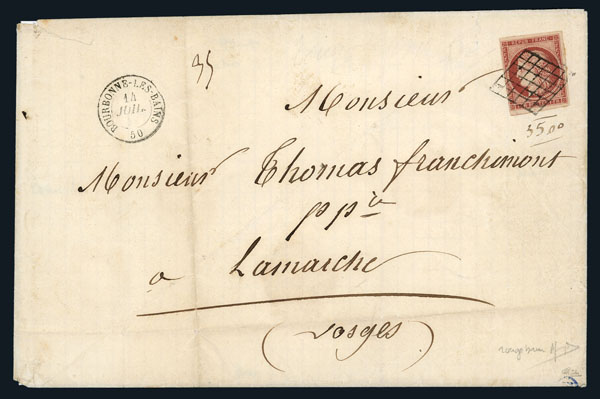 REPUB. FRANC.
BOURBONNE-LES-BAINS
14
JUIL.
50
35
Monsieur
3500
Monsieur Thomas franchimont
ppre
a Lamarche
(Vosges)